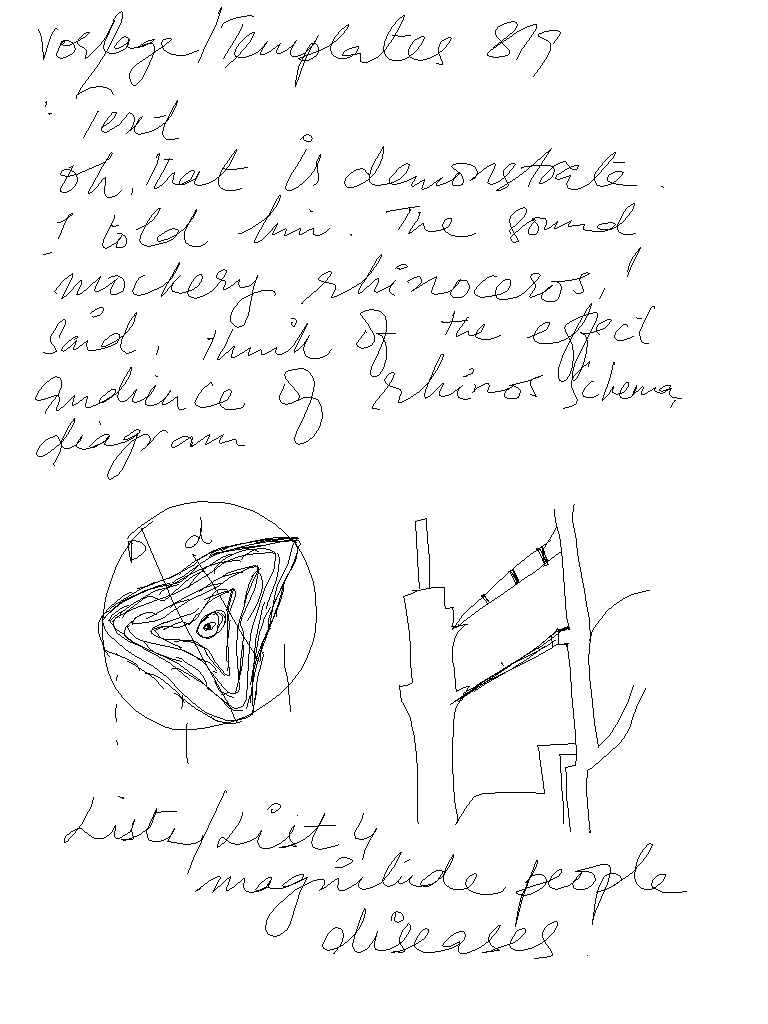 Vorlage/Templates 819
Text
Oh, that is demonstrate.
I told him. The sound
mockery rhinoceros, I
said, think of the effect
audience of rhinos schema,
diagram
D d
Liste/List 4
magnitude people
diseases.